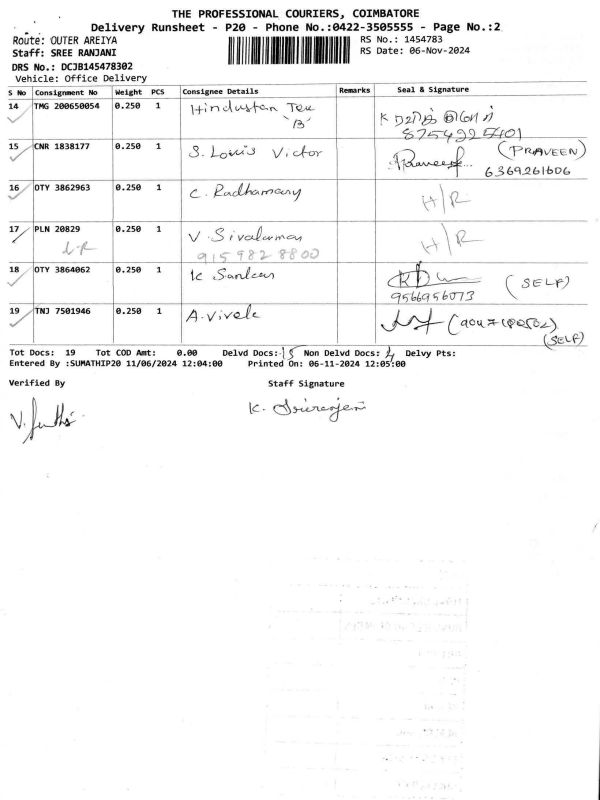 THE PROFESSIONAL COURIERS, COIMBATORE
Delivery Runsheet - P20 - Phone No.:0422-3505555 - Page No.:2
Route: OUTER AREIYA RS No.: 1454783
Staff: SREE RANJANI RS Date: 06-Nov-2024
DRS No.: DCJB145478302
Vehicle: Office Delivery
S No Consignment No Weight PCS Consignee Details Remarks Seal & Signature
14 TMG 200650054 0.250 1 Hindustan Tex
'B'
8754225401
15 CNR 1838177 0.250 1 S. Louis Victor (PRAVEEN)
Praveen
6369261606
16 OTY 3862963 0.250 1 C. Radhamany H/R
17 PLN 20829 0.250 1 V. Sivalaman H/R
915 982 8800
18 OTY 3864062 0.250 1 K (SELF)
9566956073
19 TNJ 7501946 0.250 1 A. Vivek
(SELF)
Tot Docs: 19 Tot COD Amt: 0.00 Delvd Docs: 15 Non Delvd Docs: 4 Delvy Pts:
Entered By :SUMATHIP20 11/06/2024 12:04:00 Printed On: 06-11-2024 12:05:00
Verified By Staff Signature
K.